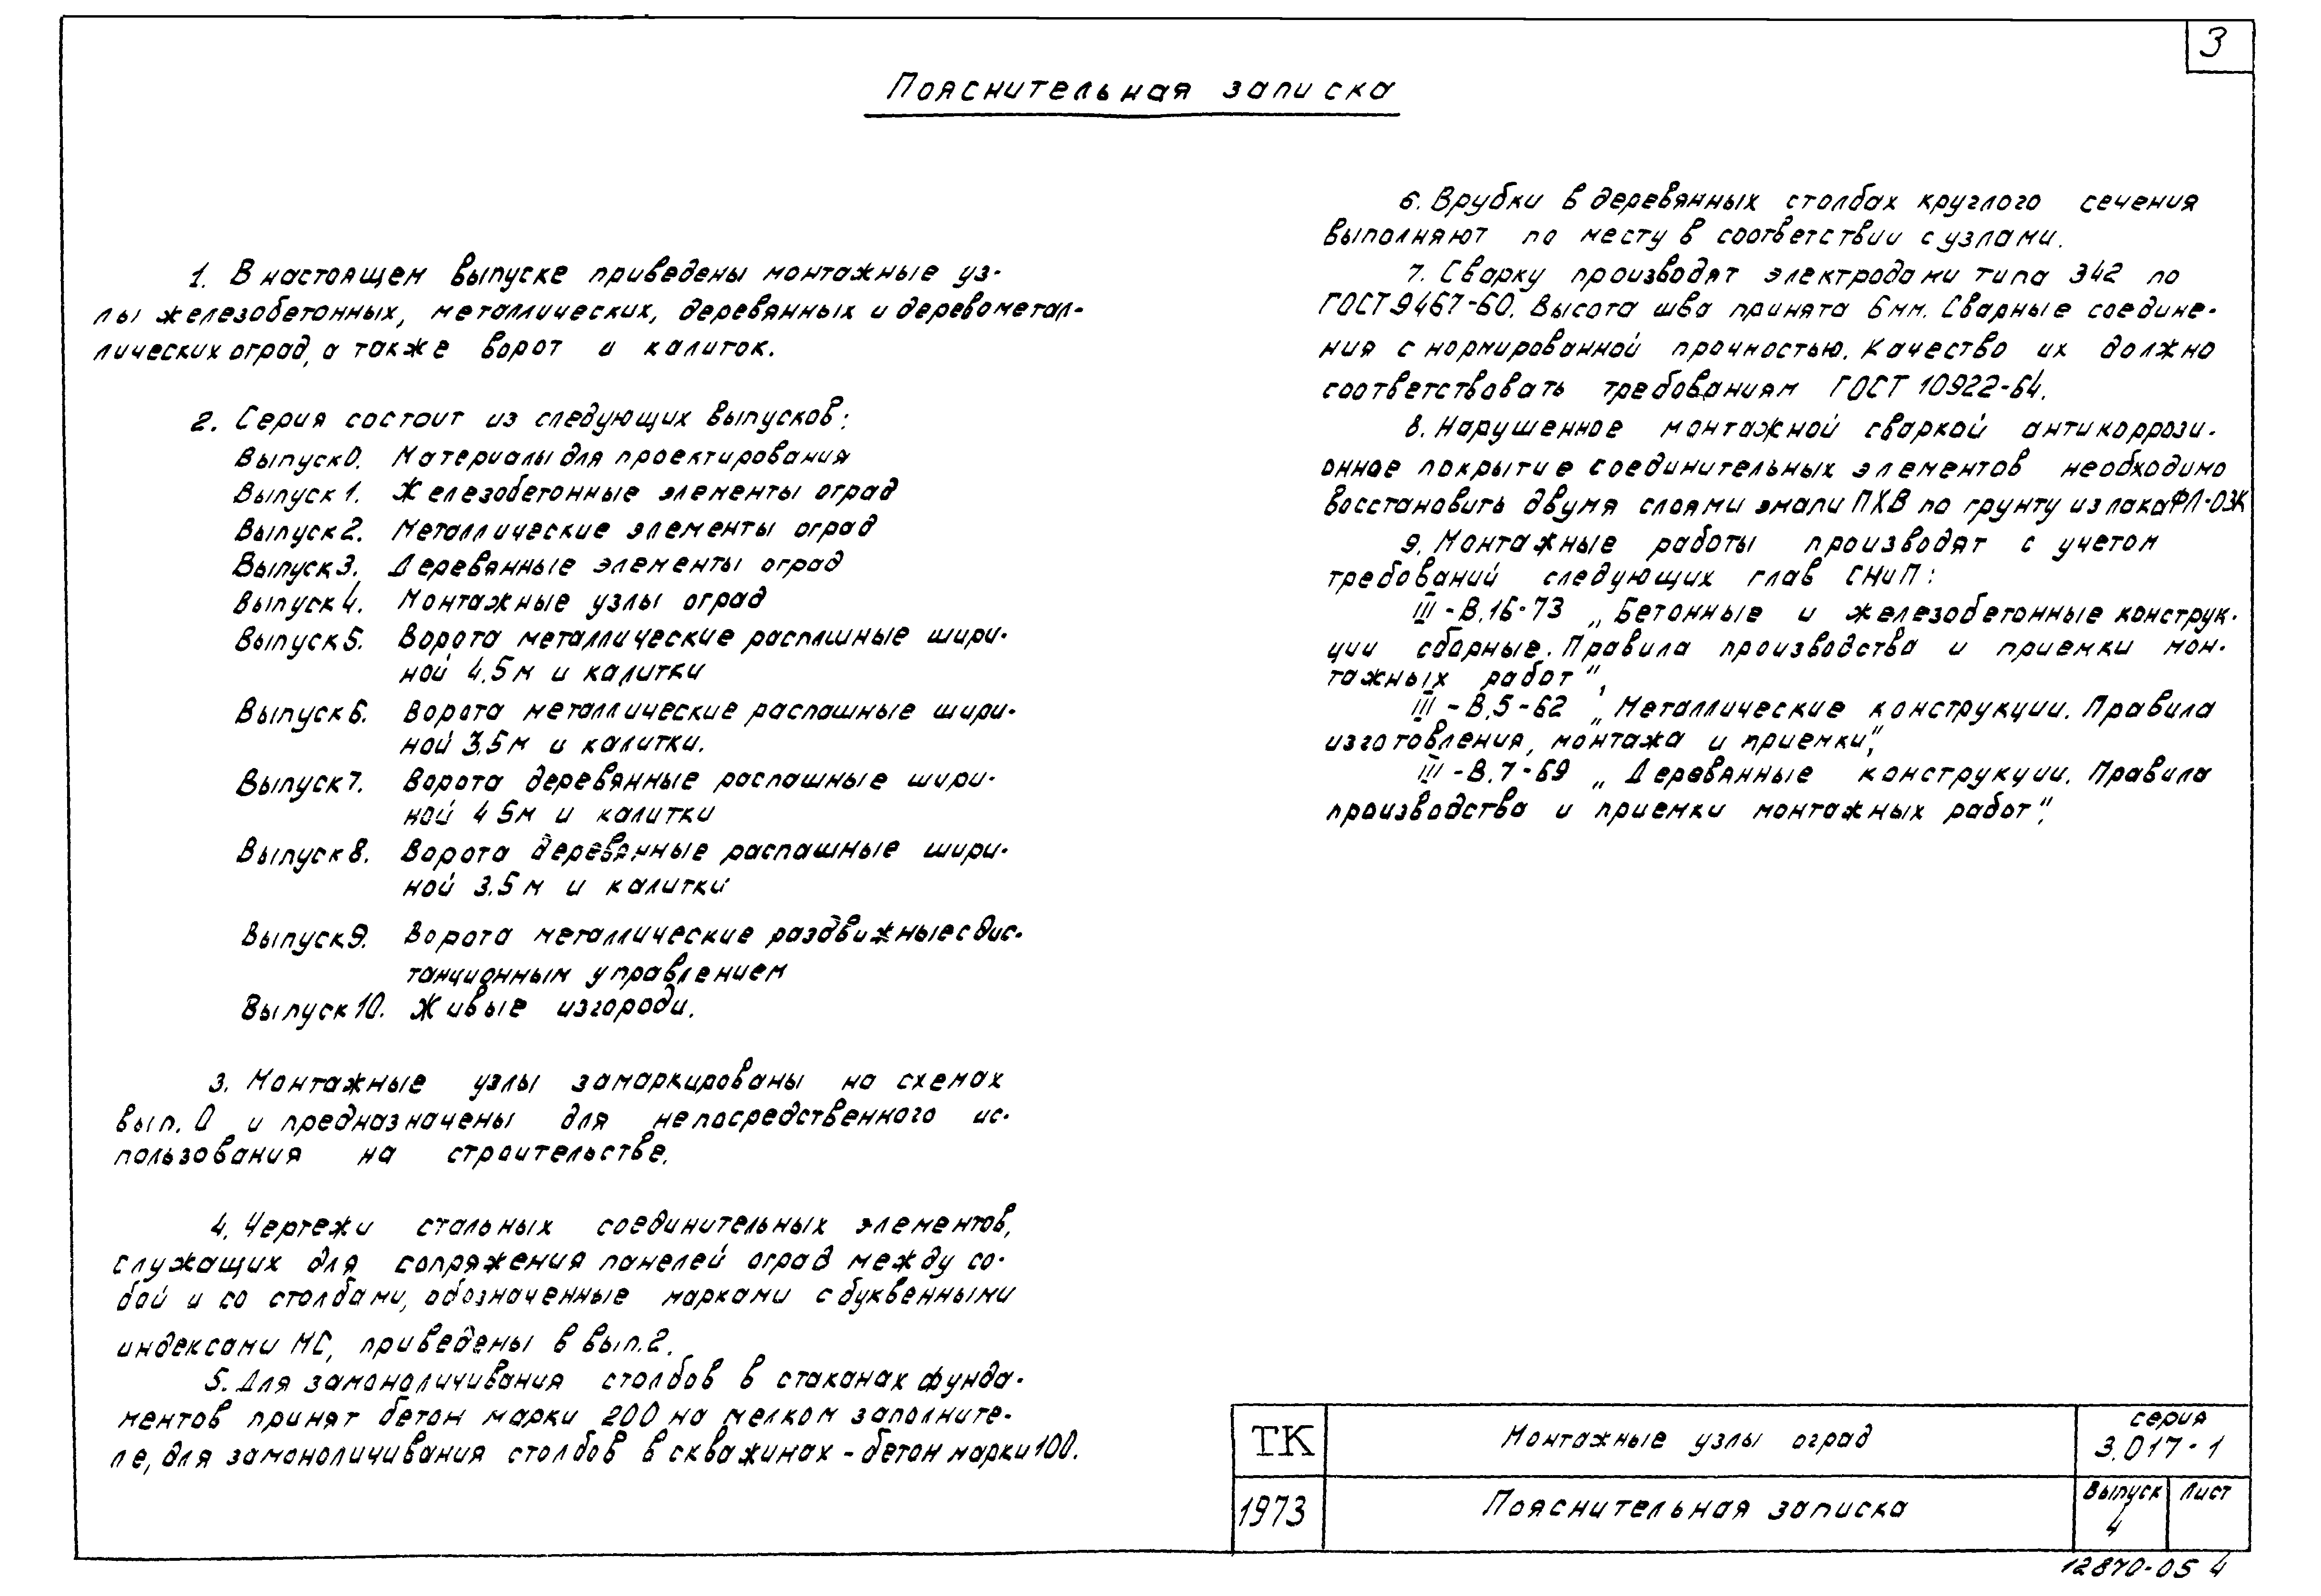 3
Пояснительная записка
1. В настоящем выпуске приведены монтажные уз-
лы железобетонных, металлических, деревянных и деревометал-
лических оград, а также ворот и калиток.
2. Серия состоит из следующих выпусков:
Выпуск 0. Материалы для проектирования
Выпуск 1. Железобетонные элементы оград
Выпуск 2. Металлические элементы оград
Выпуск 3. Деревянные элементы оград
Выпуск 4. Монтажные узлы оград
Выпуск 5. Ворота металлические распашные шири-
ной 4.5 м и калитки
Выпуск 6. Ворота металлические распашные шири-
ной 3.5 м и калитки.
Выпуск 7. Ворота деревянные распашные шири-
ной 4 5 м и калитки
Выпуск 8. Ворота деревянные распашные шири-
ной 3.5 м и калитки
Выпуск 9. Ворота металлические раздвижные с дис-
танционным управлением
Выпуск 10. Живые изгороди.
3. Монтажные узлы замаркированы на схемах
вып. 0 и предназначены для непосредственного ис-
пользования на строительстве.
4. Чертежи стальных соединительных элементов,
служащих для сопряжения панелей оград между со-
бой и со столбами, обозначенные марками с буквенными
индексами МС, приведены в вып. 2.
5. Для замоноличивания столбов в стаканах фунда-
ментов принят бетон марки 200 на мелком заполните-
ле, для замоноличивания столбов в скважинах - бетон марки 100.
6. Врубки в деревянных столбах круглого сечения
выполняют по месту в соответствии с узлами.
7. Сварку производят электродами типа Э42 по
ГОСТ 9467-60. Высота шва принята 6 мм. Сварные соедине-
ния с нормированной прочностью. Качество их должно
соответствовать требованиям ГОСТ 10922-64.
8. Нарушенное монтажной сваркой антикоррози-
онное покрытие соединительных элементов необходимо
восстановить двумя слоями эмали ПХВ по грунту из лака ФЛ-03К
9. Монтажные работы производят с учетом
требований следующих глав СНиП:
III - В.16-73 „Бетонные и железобетонные конструк-
ции сборные. Правила производства и приемки мон-
тажных работ",
III - В.5-62 „Металлические конструкции. Правила
изготовления, монтажа и приемки",
III - В.7-69 „Деревянные конструкции. Правила
производства и приемки монтажных работ".
ТК Монтажные узлы оград серия 3.017-1
1973 Пояснительная записка Выпуск 4 Лист
12870-05 4